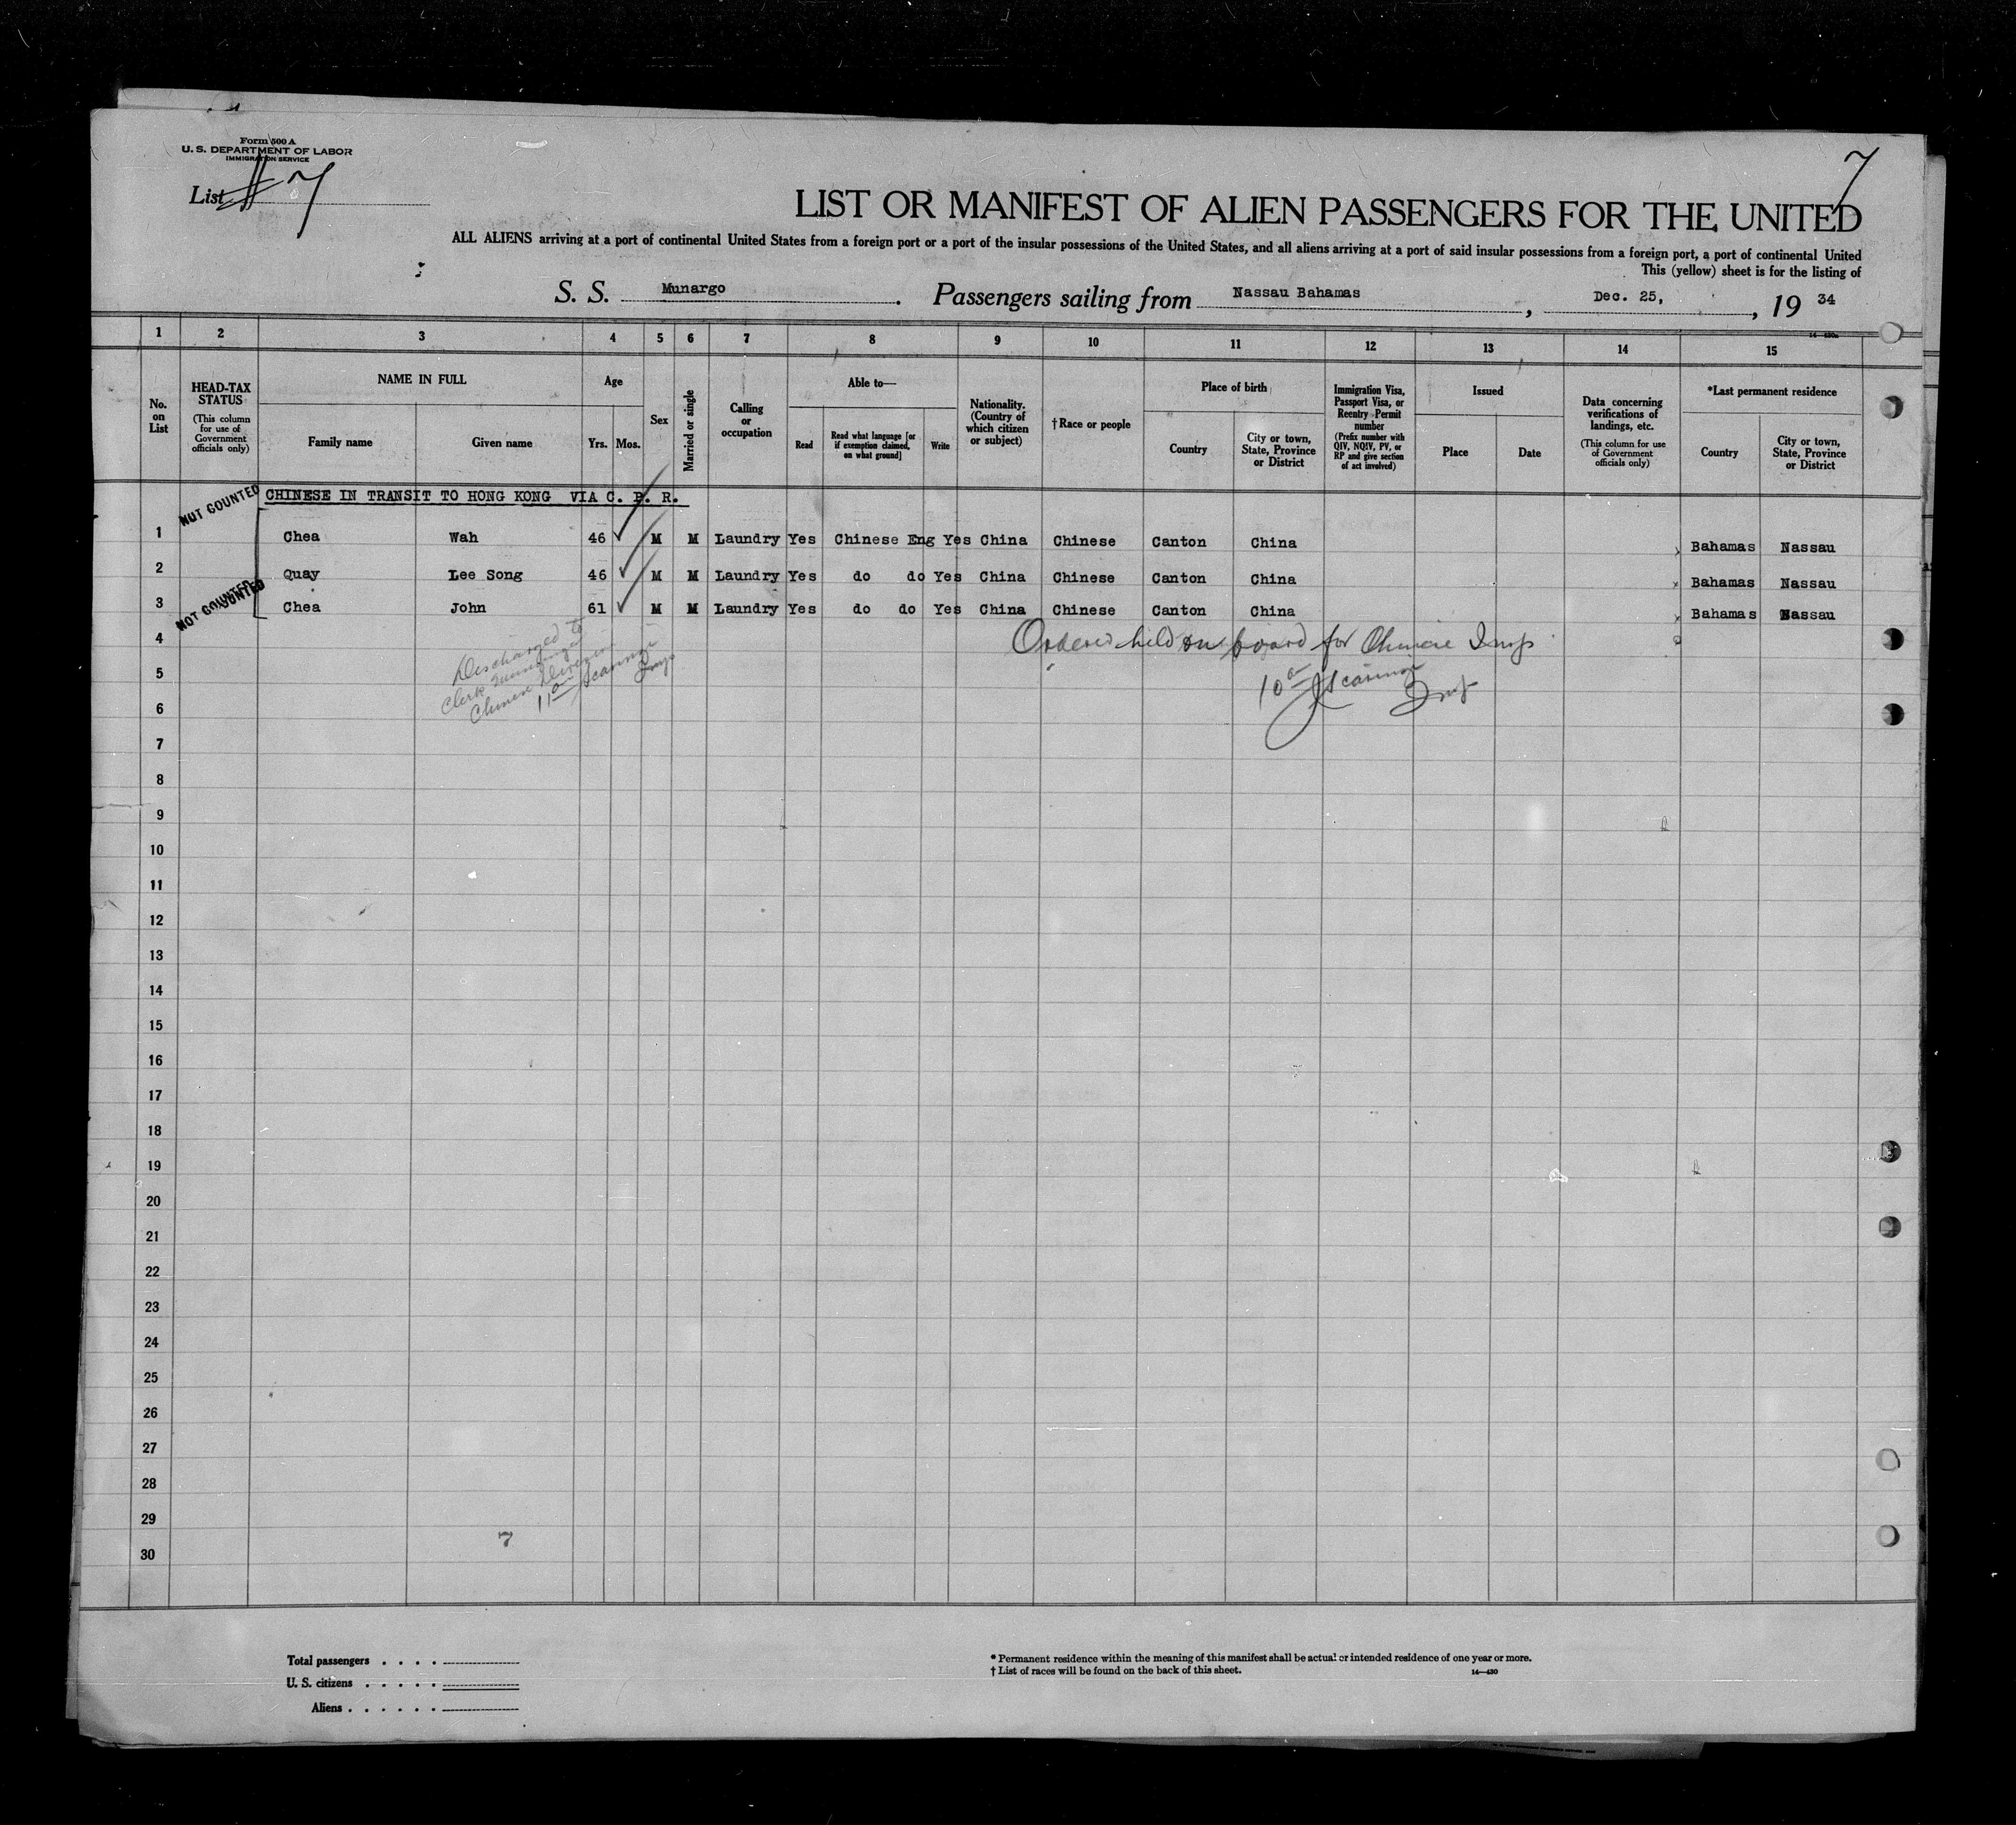 Form 500 A
U. S. DEPARTMENT OF LABOR
IMMIGRATION SERVICE
List # 7
7
LIST OR MANIFEST OF ALIEN PASSENGERS FOR THE UNITED
ALL ALIENS arriving at a port of continental United States from a foreign port or a port of the insular possessions of the United States, and all aliens arriving at a port of said insular possessions from a foreign port, a port of continental United
This (yellow) sheet is for the listing of
S. S. Munargo. Passengers sailing from Nassau Bahamas, Dec. 25, , 19 34
1 2 3 4 5 6 7 8 9 10 11 12 13 14 15
No. on List
HEAD-TAX STATUS
(This column for use of Government officials only)
NAME IN FULL
Family name Given name
Age
Yrs. Mos.
Sex
Married or single
Calling or occupation
Able to—
Read
Read what language [or if exemption claimed, on what ground]
Write
Nationality. (Country of which citizen or subject)
†Race or people
Place of birth
Country
City or town, State, Province or District
Immigration Visa, Passport Visa, or Reentry Permit number
(Prefix number with QIV, NQIV, PV, or RP and give section of act involved)
Issued
Place Date
Data concerning verifications of landings, etc.
(This column for use of Government officials only)
*Last permanent residence
Country
City or town, State, Province or District
NOT COUNTED
CHINESE IN TRANSIT TO HONG KONG VIA C. P. R.
1 Chea Wah 46 M M Laundry Yes Chinese Eng Yes China Chinese Canton China Bahamas Nassau
2 Quay Lee Song 46 M M Laundry Yes do do Yes China Chinese Canton China Bahamas Nassau
NOT COUNTED
3 Chea John 61 M M Laundry Yes do do Yes China Chinese Canton China Bahamas Nassau
4 Ordered held on board for Chinese Insp
Discharged to
5 10
Chinese
11
Insp
6
7
8
9
10
11
12
13
14
15
16
17
18
19
20
21
22
23
24
25
26
27
28
29
7
30
Total passengers . . . .
U. S. citizens . . . . .
Aliens . . . . . .
* Permanent residence within the meaning of this manifest shall be actual or intended residence of one year or more.
† List of races will be found on the back of this sheet.
14—430